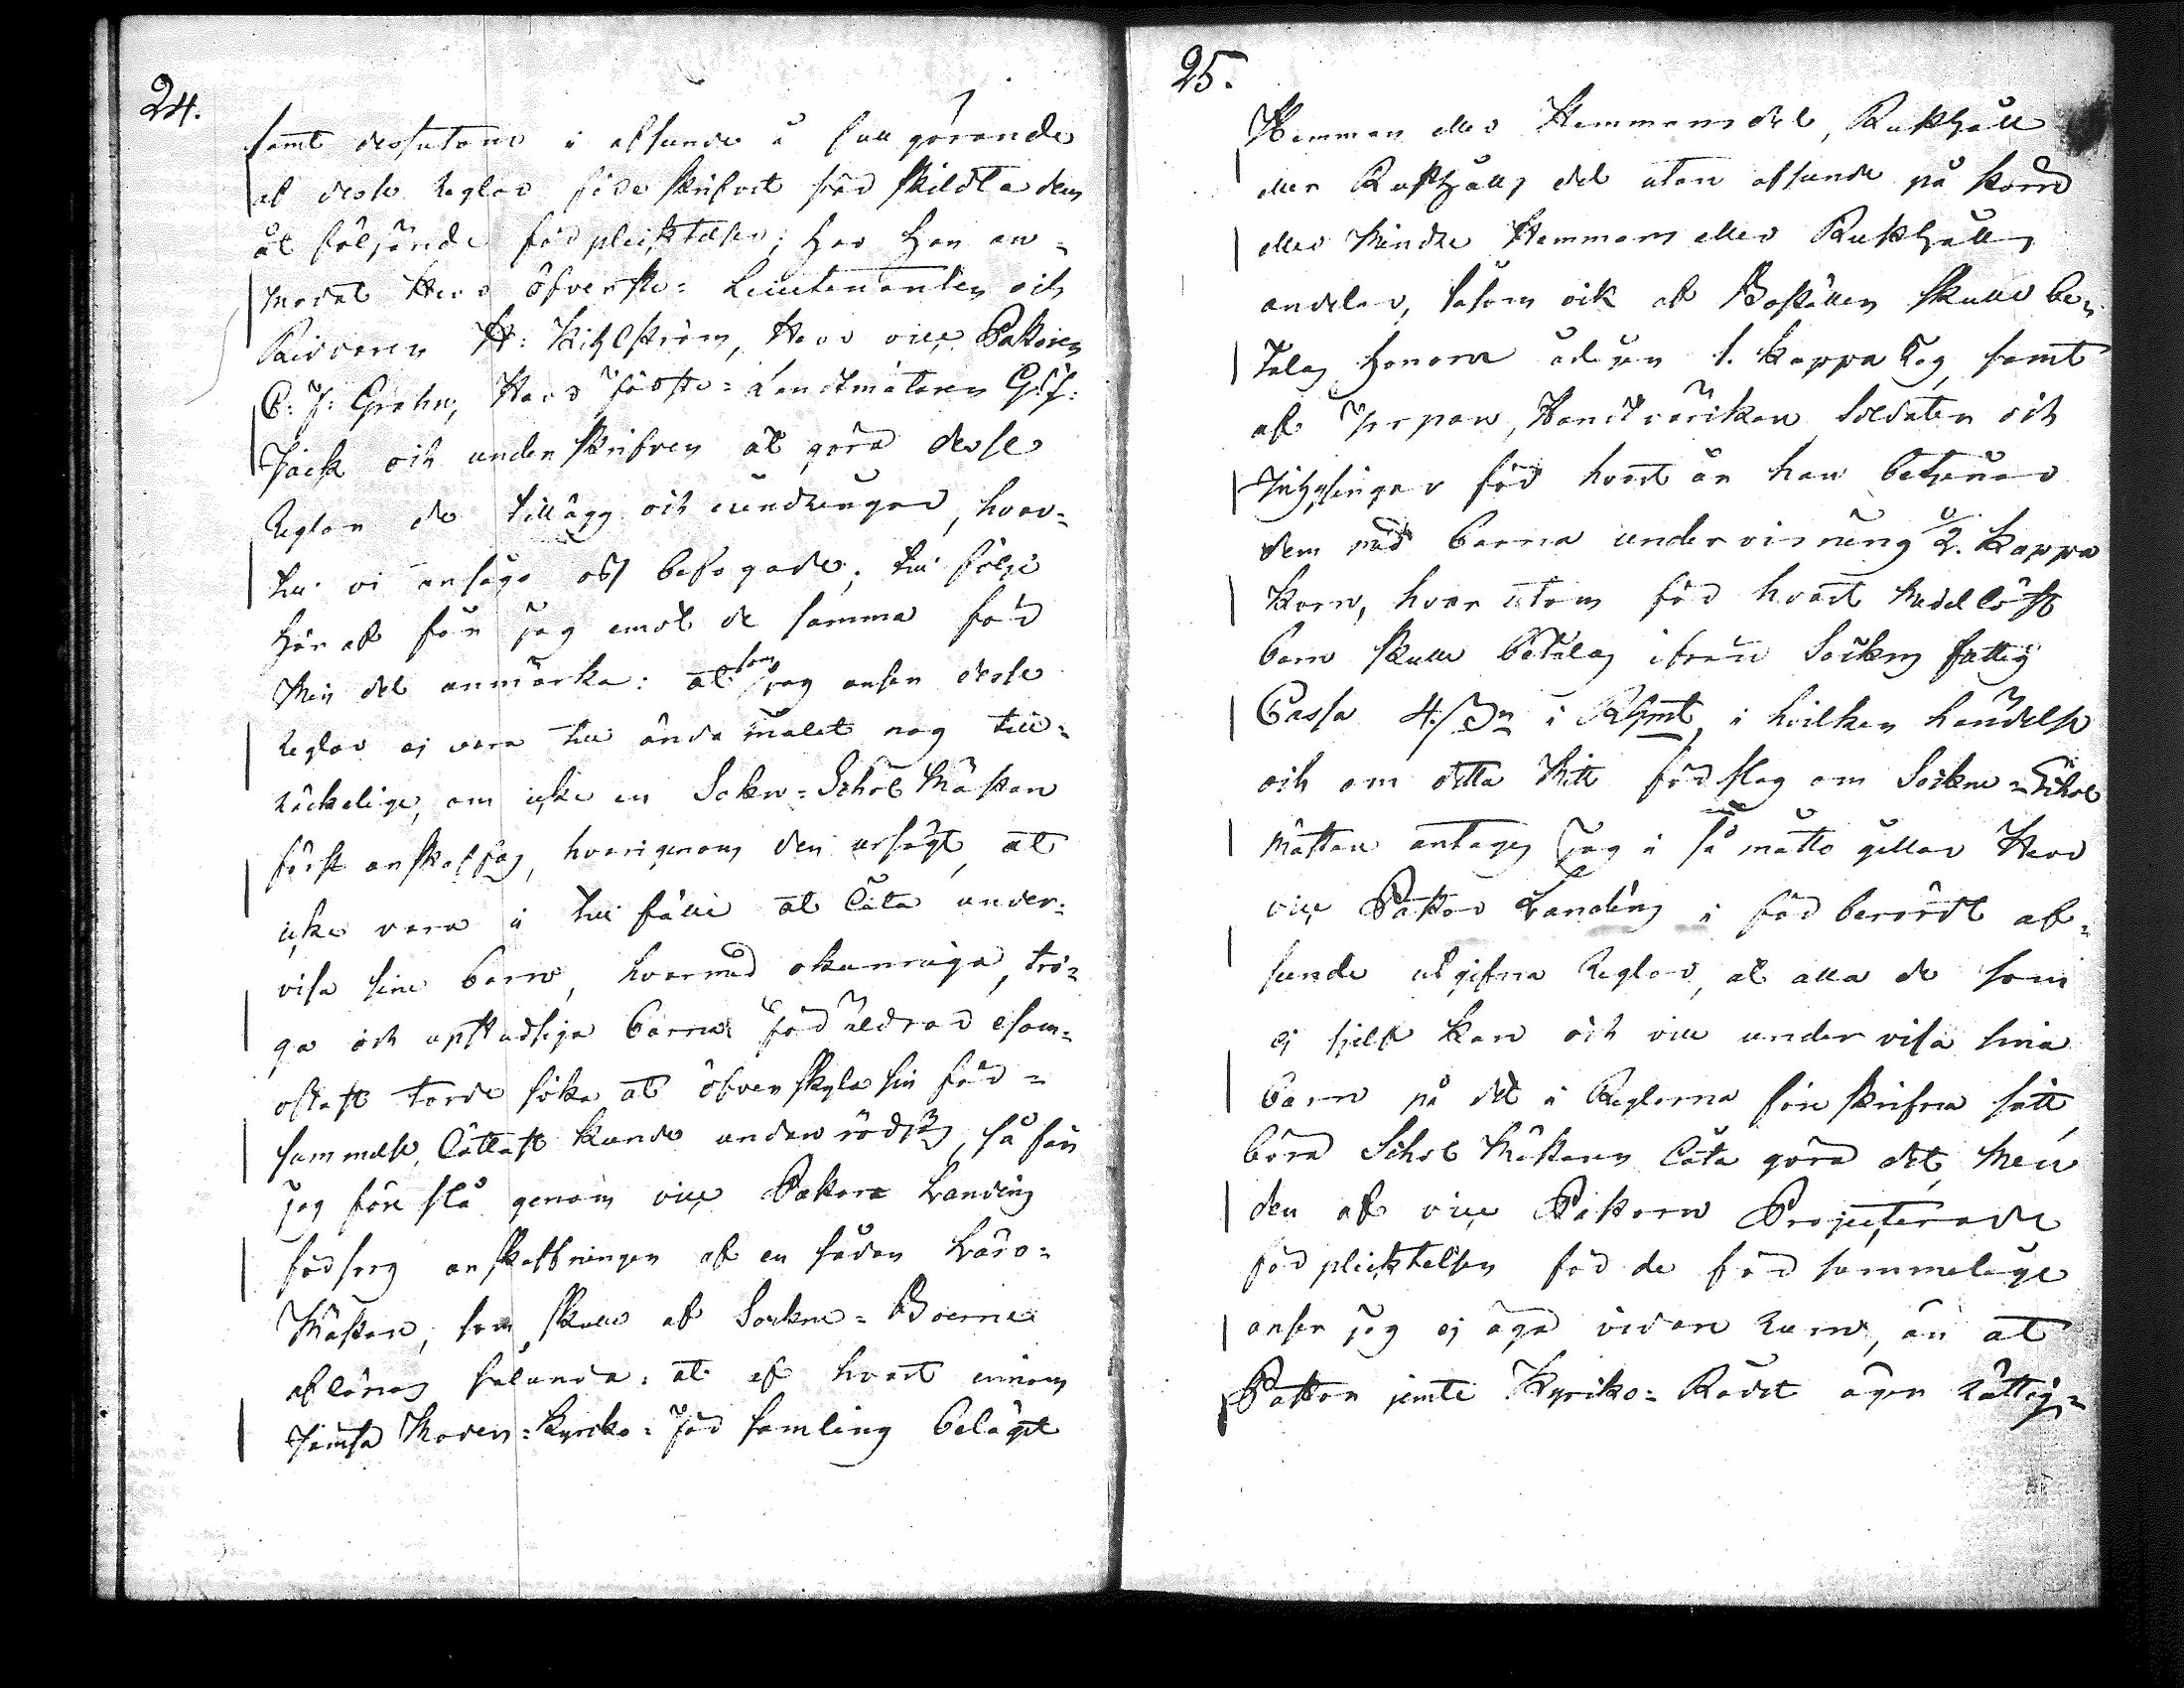 24.
samt dessutom i afseende å full görande
af desse Reglor före skrifvit sär skildta dem
åt följande förplicktelser; har han an-
modat Herr Öfverste-Lieutenanten och
Riddaren H: Kihlström, Herr vice Pastorn
C: J: Grahn, Herr Förste-Landtmätaren G: J:
Jack och underskrifven at göra desse
Reglor de tillägg och ändringar, hvar-
till vi ansågo oss befogade; till följe
här af får jag emot de samma för
min del anmärka: at som jag anser desse
Reglor ej vara till ändamålet nog till-
räckelige, om icke en Sokn-Schol Mästare
först anskaffas, hvarigenom den ursägt, at
icke vara i till fälle at låta under-
visa sine barn, hvarmed okunniga, trö-
ga och upstudsiga barna föräldrar esom-
oftast torde söka at öfverskyla sin för-
summelse, lättast kunde undanrödjas, så får
jag före slå genom vice Pastor Landéns
försorg anskaffningen af en sådan Läro-
Mästare, som skulle af Sockne-Boerne
aflönas sålunda: at af hvart innom
Jämsä Moder-Kyrko-Församling belägit
25.
Hemman eller Hemmans del, Rusthåll
eller Rusthålls del utan afseende på större
eller mindre Hemmans eller Rusthålls
andelar, såsom ock af Boställen skulle be-
talas honom årligen 1. kappa Råg, samt
af Torpare, Handtvärkare, Soldater och
Inhysingar för hvart år han betjenar
dem med barna undervisning 2. kappa
Korn, hvar utom för hvart medellöst
barn skulle betalas ifrån Sockns fattig
Cassa 4. i Rgmt, i hvilken händelse
och om detta mitt förslag om Sockne-Schol
mästare antages jag i så måtto gillar Herr
vice Pastor Landéns i förberördt af-
seende utgifna Reglor, at alla de som
ej sjelf kan och vill undervisa sina
barn på det i Reglorna före skrifna sätt,
böra Schol Mästaren låta göra det; men
den af vice Pastorn Projecterade
förplicktelsen för de försummelige
anser jag ej äga vidare rum, än at
Pastor jemte Kyrko-Rådet äger rättig-